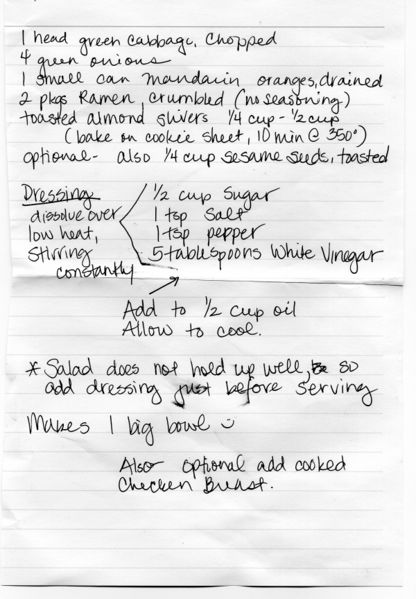 1 head green cabbage, chopped
4 green onions
1 small can mandarin oranges, drained
2 pkgs Ramen, crumbled (no seasoning)
toasted almond slivers 1/4 cup - 1/2 cup
(bake on cookie sheet, 10 min @ 350°)
optional - also 1/4 cup sesame seeds, toasted
Dressing 1/2 cup Sugar
dissolve over 1 tsp salt
low heat, 1 tsp pepper
stirring 5 tablespoons White Vinegar
constantly
Add to 1/2 cup oil
Allow to cool.
* Salad does not hold up well, so
add dressing just before serving
Makes 1 big bowl
Also optional add cooked
Chicken Breast.